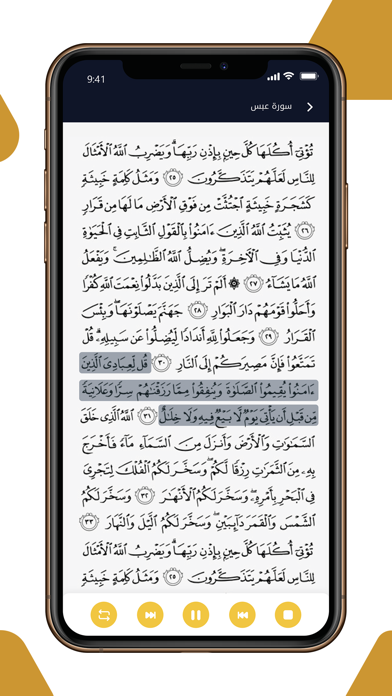 9:41
سورة عبس
تُؤْتِىٓ أُكُلَهَا كُلَّ حِينٍۭ بِإِذْنِ رَبِّهَا ۗ وَيَضْرِبُ ٱللَّهُ ٱلْأَمْثَالَ
لِلنَّاسِ لَعَلَّهُمْ يَتَذَكَّرُونَ ٢٥ وَمَثَلُ كَلِمَةٍ خَبِيثَةٍ
كَشَجَرَةٍ خَبِيثَةٍ ٱجْتُثَّتْ مِن فَوْقِ ٱلْأَرْضِ مَا لَهَا مِن قَرَارٍ
٢٦ يُثَبِّتُ ٱللَّهُ ٱلَّذِينَ ءَامَنُوا۟ بِٱلْقَوْلِ ٱلثَّابِتِ فِى ٱلْحَيَوٰةِ
ٱلدُّنْيَا وَفِى ٱلْءَاخِرَةِ ۖ وَيُضِلُّ ٱللَّهُ ٱلظَّٰلِمِينَ ۚ وَيَفْعَلُ
ٱللَّهُ مَا يَشَآءُ ٢٧ ۞ أَلَمْ تَرَ إِلَى ٱلَّذِينَ بَدَّلُوا۟ نِعْمَتَ ٱللَّهِ كُفْرًا
وَأَحَلُّوا۟ قَوْمَهُمْ دَارَ ٱلْبَوَارِ ٢٨ جَهَنَّمَ يَصْلَوْنَهَا ۖ وَبِئْسَ
ٱلْقَرَارُ ٢٩ وَجَعَلُوا۟ لِلَّهِ أَندَادًا لِّيُضِلُّوا۟ عَن سَبِيلِهِۦ ۗ قُلْ
تَمَتَّعُوا۟ فَإِنَّ مَصِيرَكُمْ إِلَى ٱلنَّارِ ٣٠ قُل لِّعِبَادِىَ ٱلَّذِينَ
ءَامَنُوا۟ يُقِيمُوا۟ ٱلصَّلَوٰةَ وَيُنفِقُوا۟ مِمَّا رَزَقْنَٰهُمْ سِرًّا وَعَلَانِيَةً
مِّن قَبْلِ أَن يَأْتِىَ يَوْمٌ لَّا بَيْعٌ فِيهِ وَلَا خِلَٰلٌ ٣١ ٱللَّهُ ٱلَّذِى خَلَقَ
ٱلسَّمَٰوَٰتِ وَٱلْأَرْضَ وَأَنزَلَ مِنَ ٱلسَّمَآءِ مَآءً فَأَخْرَجَ
بِهِۦ مِنَ ٱلثَّمَرَٰتِ رِزْقًا لَّكُمْ ۖ وَسَخَّرَ لَكُمُ ٱلْفُلْكَ لِتَجْرِىَ
فِى ٱلْبَحْرِ بِأَمْرِهِۦ ۖ وَسَخَّرَ لَكُمُ ٱلْأَنْهَٰرَ ٣٢ وَسَخَّرَ لَكُمُ
ٱلشَّمْسَ وَٱلْقَمَرَ دَآئِبَيْنِ ۖ وَسَخَّرَ لَكُمُ ٱلَّيْلَ وَٱلنَّهَارَ ٣٣
تُؤْتِىٓ أُكُلَهَا كُلَّ حِينٍۭ بِإِذْنِ رَبِّهَا ۗ وَيَضْرِبُ ٱللَّهُ ٱلْأَمْثَالَ
لِلنَّاسِ لَعَلَّهُمْ يَتَذَكَّرُونَ ٢٥ وَمَثَلُ كَلِمَةٍ خَبِيثَةٍ